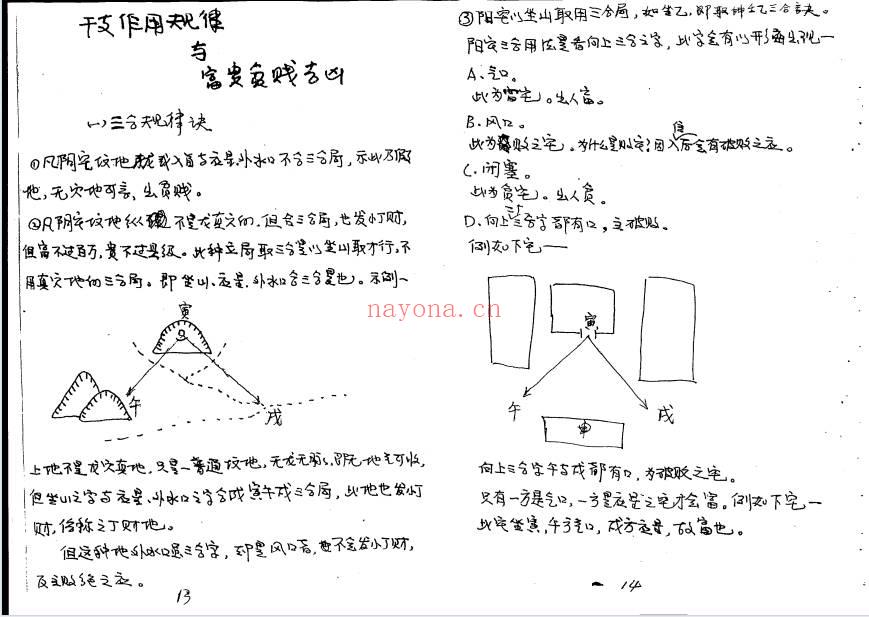 干支作用规律
与
富贵贫贱吉凶
(一)三合规律诀
①凡阴宅坟地龙或入首与应星外水口不合三合局，示此乃假
地，无穴地可言，出贫贱。
②凡阴宅坟地纵不是龙真穴的，但合三合局，也发小丁财，
但富不过百万，贵不过县级。此种立局取三合是以坐山取才行，不
用真穴地的三合局。即坐山、应星、外水口合三合是也。示例一
寅
午
戌
上地不是龙穴真地，只是一普通坟地，无龙无脉，即无地气可收，
但坐山之字与应星、外水口之字合成寅午戌三合局，此地也发小丁
财，俗称之丁财地。
但这种地外水口虽三合字，却是风口者，也不会发小丁财，
反主败绝之应。
13
③阳宅以坐山取用三合局，如坐乙，即取
三合
阳宅三合用法是看向上三合之字，此字会有以形
出现一
A、气口。
此为富宅。出人富。
B、风口。
此为败之宅。为什么是败宅？因入住后会有破败之应。
C、闭塞。
此为贫宅。出人贫。
D、向上三合字都有口，主破败。
例如下宅一
寅
午
戌
申
向上三合字午与戌都有口，为破败之宅。
只有一方是气口，一方是应星之宅才会富。例如下宅一
此宅坐寅，午方气口，戌方应星，故富也。
14
nayona.cn